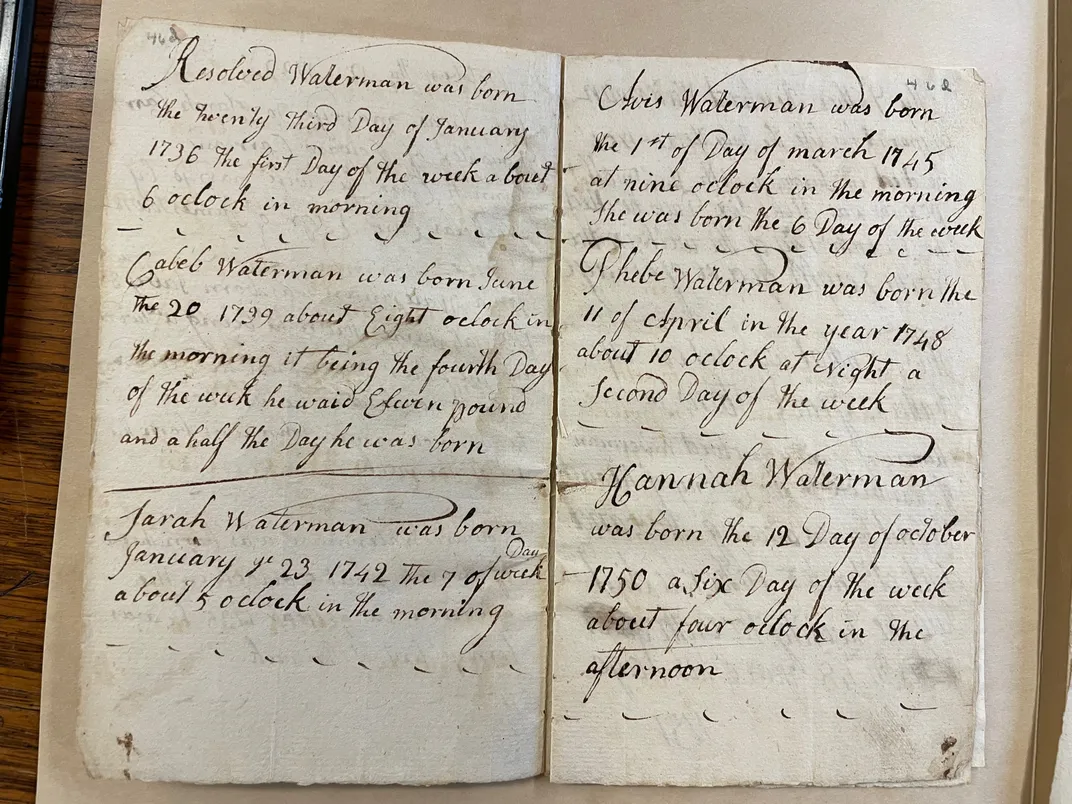 468
Resolved Waterman was born
the twenty third Day of January
1736 the first Day of the week about
6 oclock in morning
Caleb Waterman was born June
the 20 1739 about Eight oclock in
the morning it being the fourth Day
of the week he waid Eleven pound
and a half the Day he was born
Sarah Waterman was born
January ye 23 1742 the 7 Day of week
about 5 oclock in the morning
468
Avis Waterman was born
the 1st of Day of march 1745
at nine oclock in the morning
She was born the 6 Day of the week
Phebe Waterman was born the
11 of April in the year 1748
about 10 oclock at Night a
Second Day of the week
Hannah Waterman
was born the 12 Day of october
1750 a Six Day of the week
about four oclock in the
afternoon